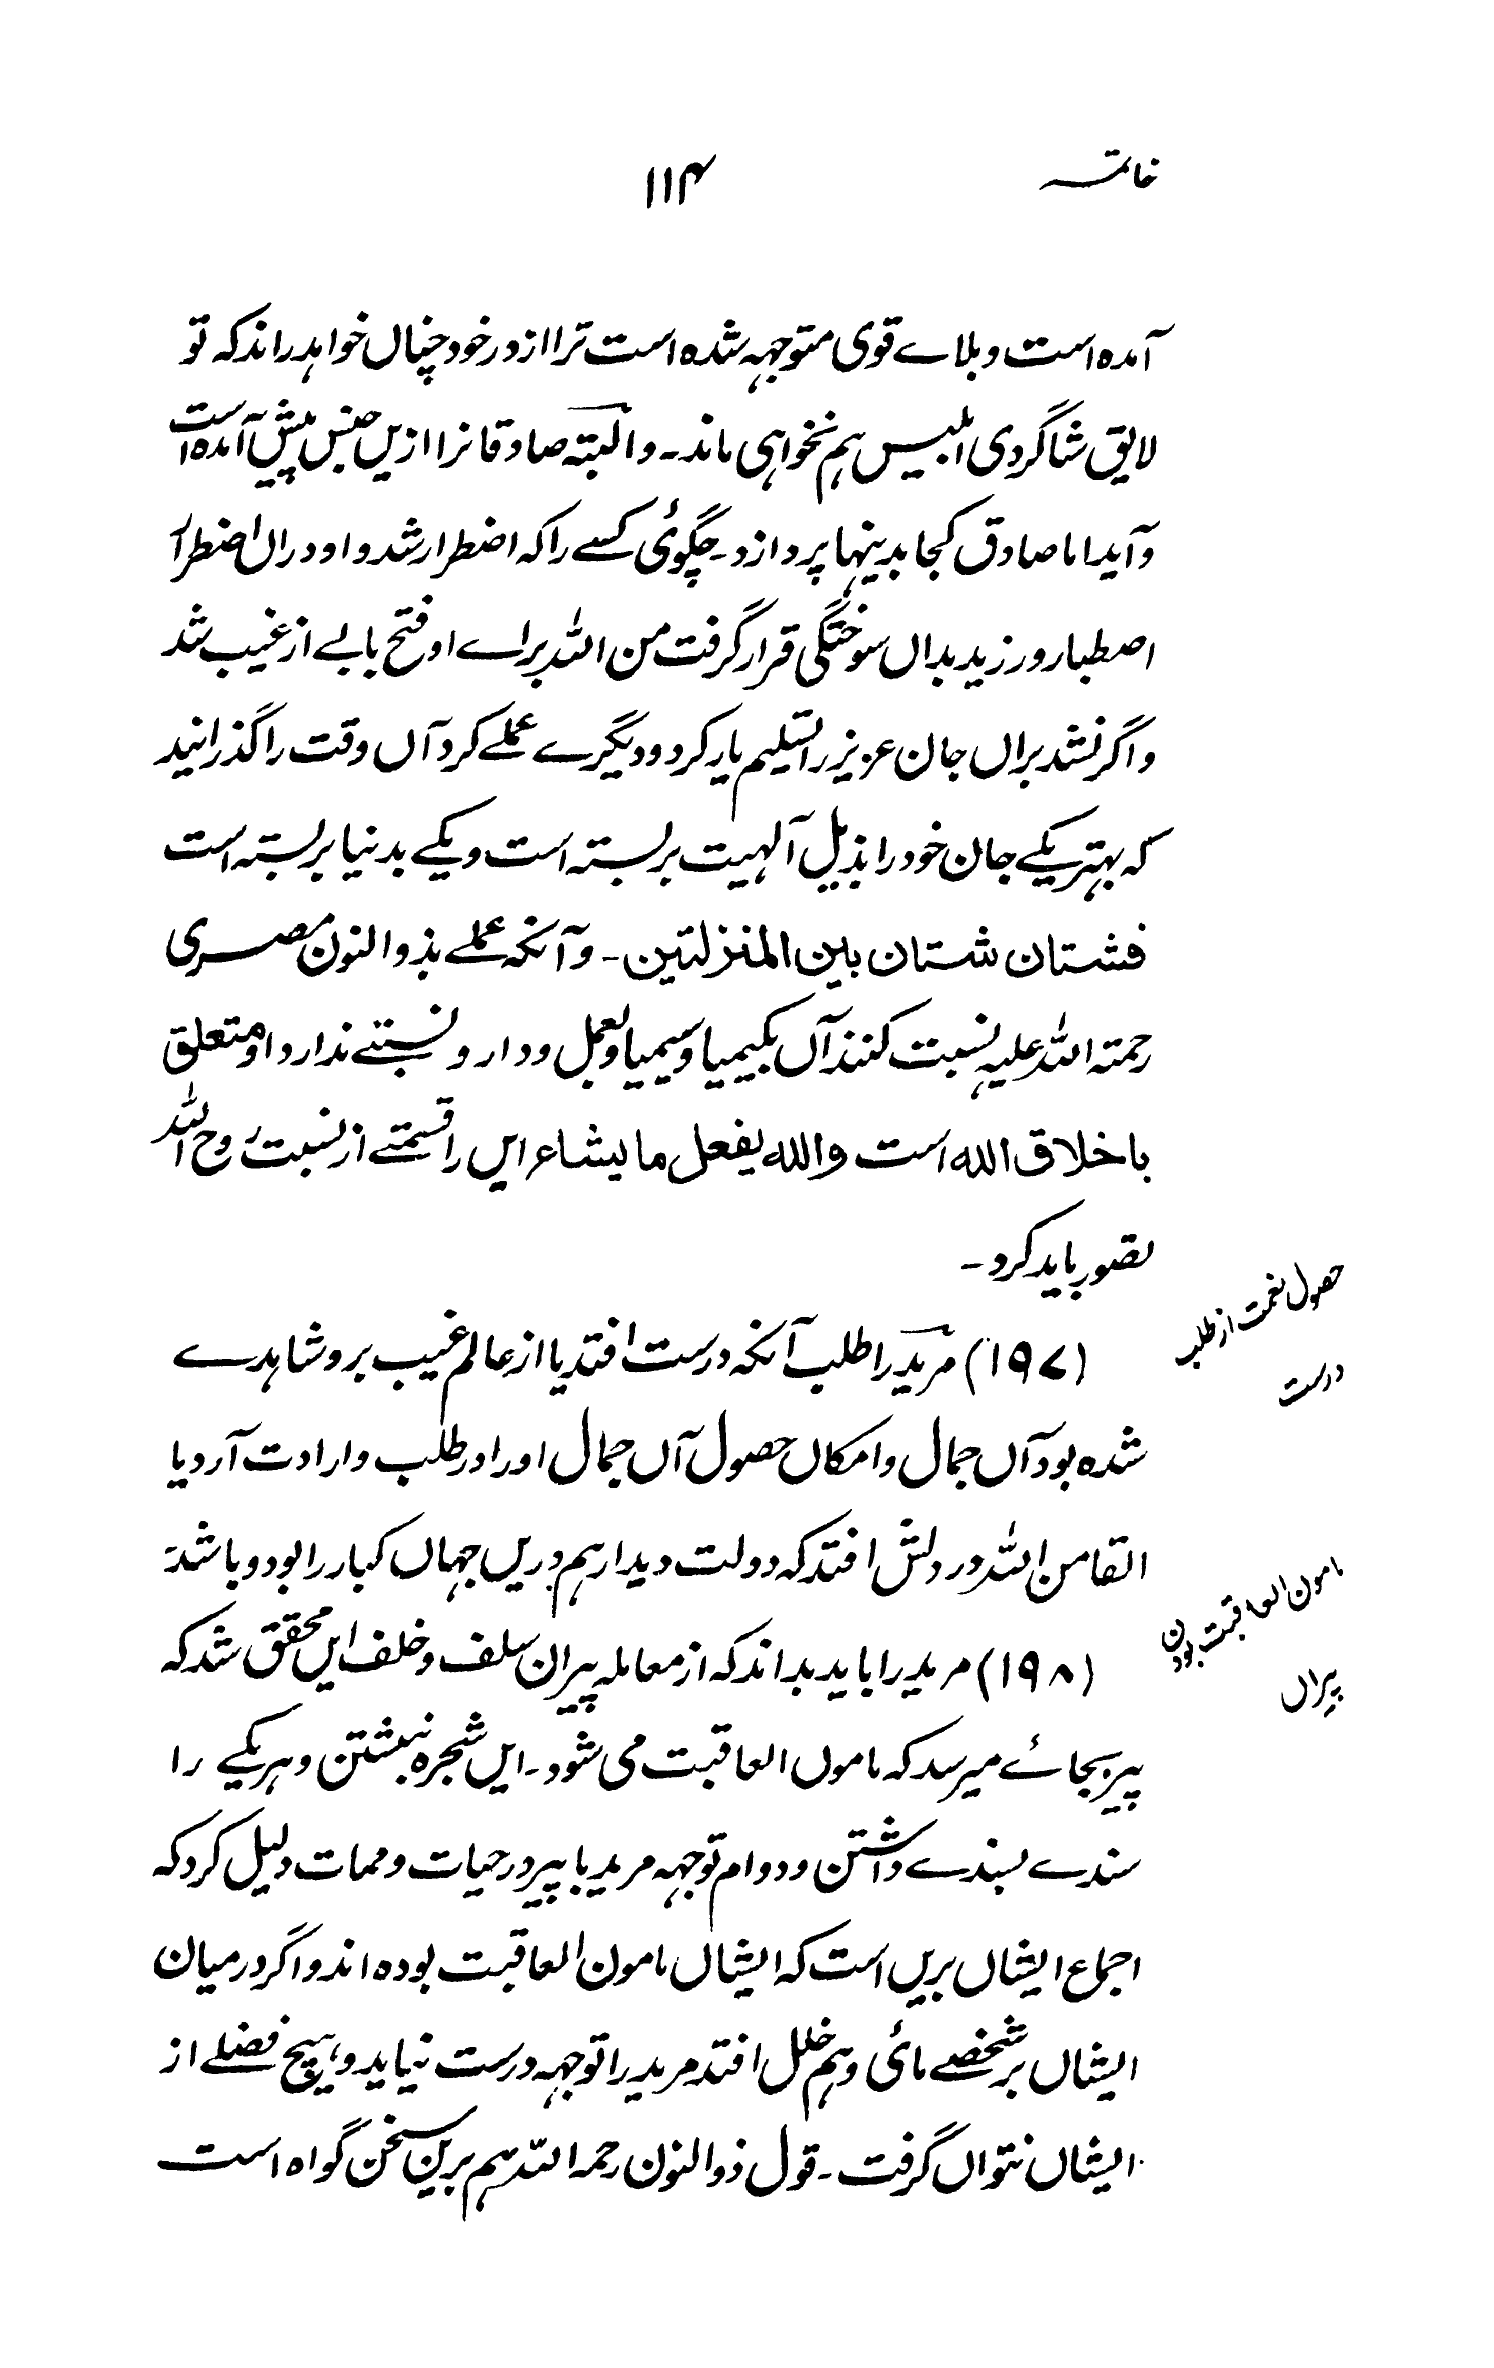 خاتمہ
۱۱۴
آمدہ است و بلاے قوی متوجہہ شدہ است ترا از در خود چناں خواہد راند کہ تو
لایق شاگردی ابلیس ہم نخواہی ماند۔ و البتہ صادقانرا ازیں جنس پیش آمدہ است
و آید اما صادق کجا بدینہا پردازد۔ چگوئی کسے را کہ اضطرار شد و او دراں اضطرار
اصطبار ورزید بداں سوختگی قرار گرفت من اللہ براے او فتح بابے از غیب شد
و اگر نشد براں جان عزیز را تسلیم یار کرد و دیگرے عملے کرد آں وقت را گذرانید
کہ بہتر یکے جان خود را بذیل آلہیت بربستہ است و یکے بدنیا بربستہ است
فشتان شتان بین المنزلتین۔ و آنکہ عملے بذوالنون مصری
رحمتہ اللہ علیہ نسبت کنند آں بکیمیا و سیمیا و بعمل و دار و نسبتے ندارد او متعلق
باخلاق اللہ است واللہ یفعل مایشاء ایں را قسمتے از نسبت روح اللہ
تصور باید کرد۔
حصول نعمت از طلب
درست
(۱۹۷) مرید را طلب آنکہ درست افتد یا از عالم غیب برو شاہدے
شدہ بود آں جمال و امکاں حصول آں جمال او را در طلب و ارادت آرد یا
القا من اللہ در دلش افتد کہ دولت دیدار ہم دریں جہاں کبار را بود و باشد
مامون العاقبت بودن
پیراں
(۱۹۸) مرید را باید بداند کہ از معاملہ پیران سلف و خلف ایں محقق شد کہ
پیر بجائے میرسد کہ ماموں العاقبت می شود۔ ایں شجرہ نبشتن و ہر یکے را
سندے بسندے داشتن و دوام توجہہ مرید با پیر در حیات و ممات دلیل کرد کہ
اجماع ایشاں بریں است کہ ایشاں مامون العاقبت بودہ اند و اگر درمیان
ایشاں بر شخصے مائی وہم خلل افتد مرید را توجہہ درست نیاید و ہیچ فضلے از
ایشاں نتواں گرفت۔ قول ذوالنون رحمہ اللہ ہم برین سخن گواہ است